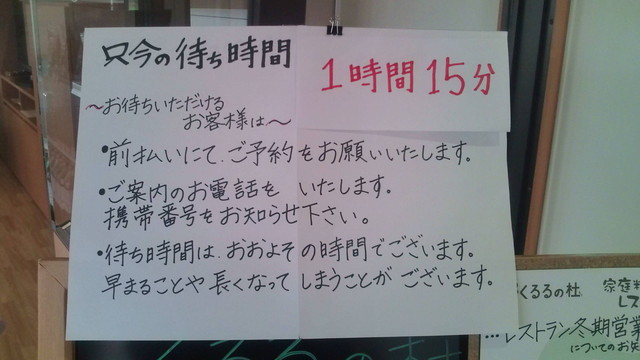 只今の待ち時間
1時間15分
～お待ちいただける
お客様は～
•前払いにて、ご予約をお願いいたします。
•ご案内のお電話を いたします。
携帯番号をお知らせ下さい。
•待ち時間は、おおよその時間でございます。
早まることや長くなってしまうことがございます。
くるるの杜
家庭
レス
レストラン冬期営業
についてのお
くるるの杜